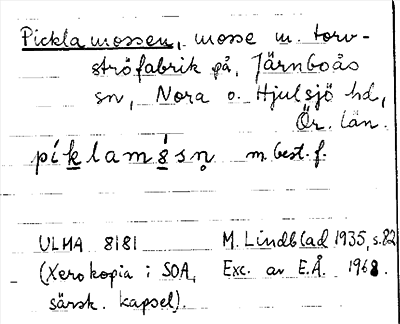 Picklamossen, mosse m. torv-
ströfabrik på, Järnboås
sn, Nora o. Hjulsjö hd,
Ör. län.
píklamósn̥ m best. f.
ULMA 8181 M. Lindblad 1935, s. 82
(Xerokopia i SOA, Exc. av E.Å. 1968.
särsk. kapsel).